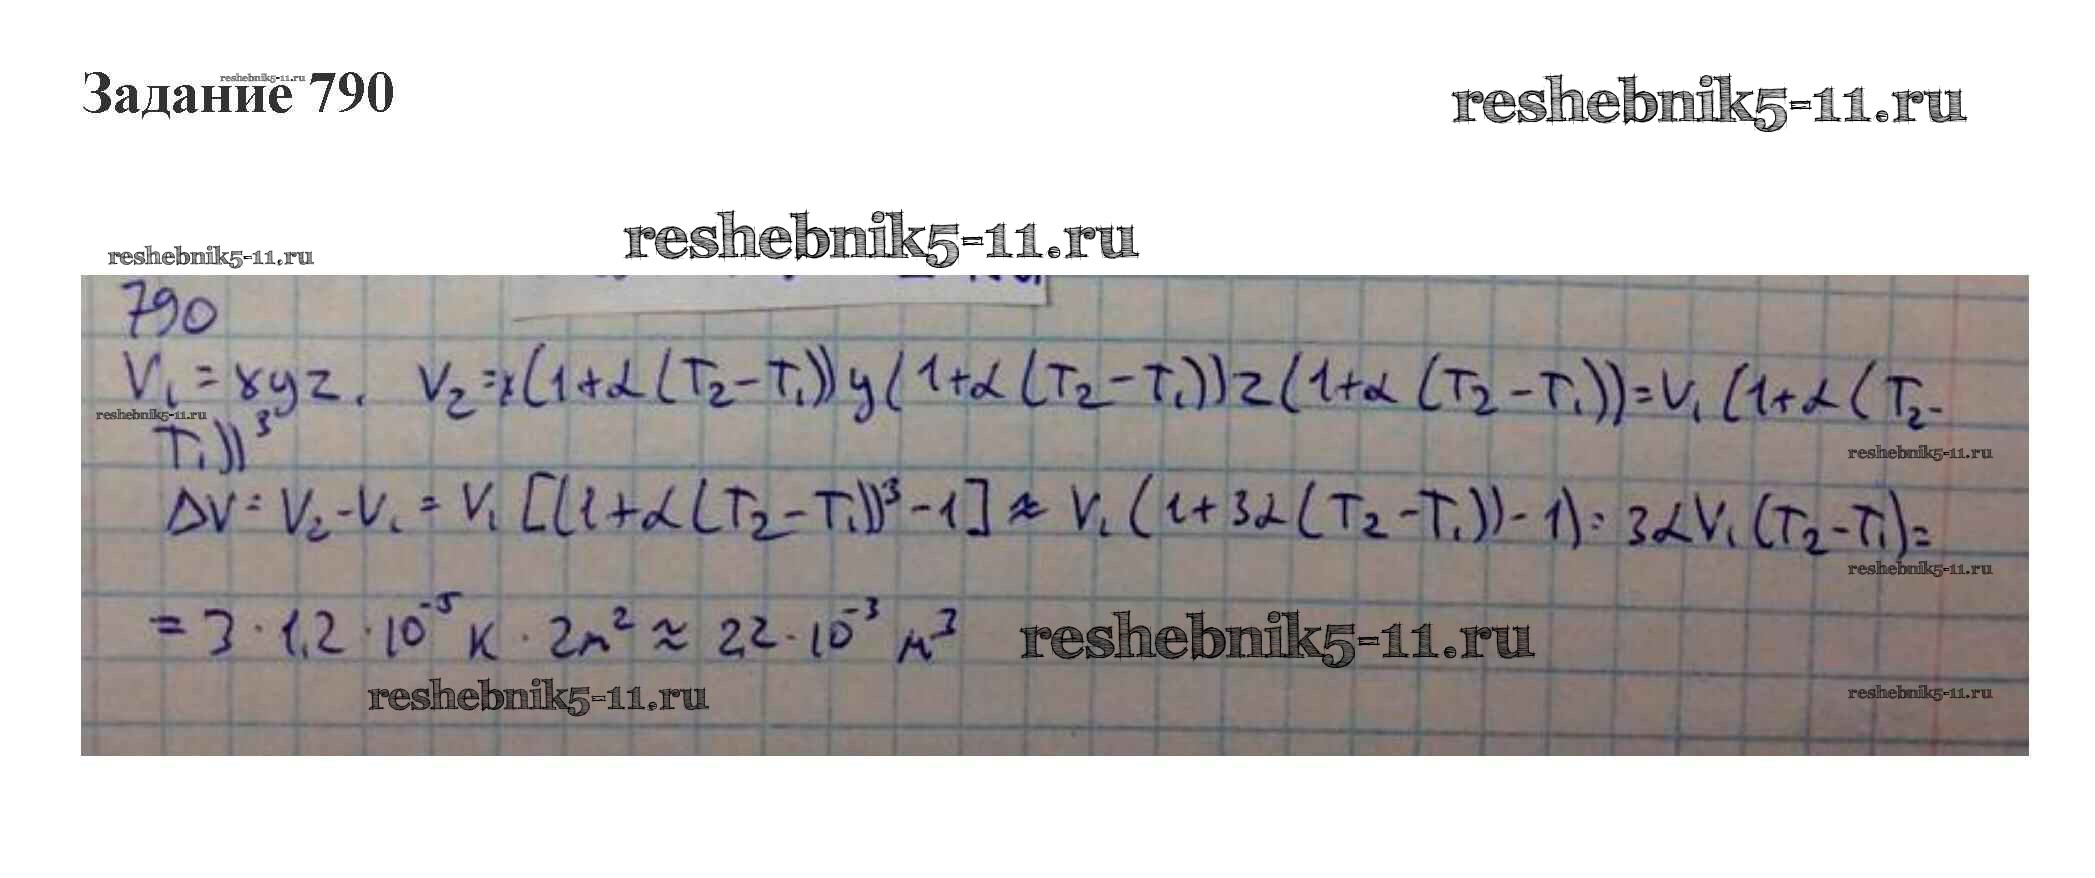 reshebnik5-11.ru
Задание 790
reshebnik5-11.ru
reshebnik5-11.ru
reshebnik5-11.ru
790
V₁ = xyz. V₂ = x(1+α(T₂-T₁))y(1+α(T₂-T₁))z(1+α(T₂-T₁))=V₁(1+α(T₂-
reshebnik5-11.ru
T₁))³
reshebnik5-11.ru
ΔV = V₂-V₁ = V₁[(1+α(T₂-T₁))³-1] ≈ V₁(1+3α(T₂-T₁))-1) = 3αV₁(T₂-T₁)=
reshebnik5-11.ru
= 3 · 1,2 · 10⁻⁵ К · 2м² ≈ 2,2 · 10⁻³ м³
reshebnik5-11.ru
reshebnik5-11.ru
reshebnik5-11.ru